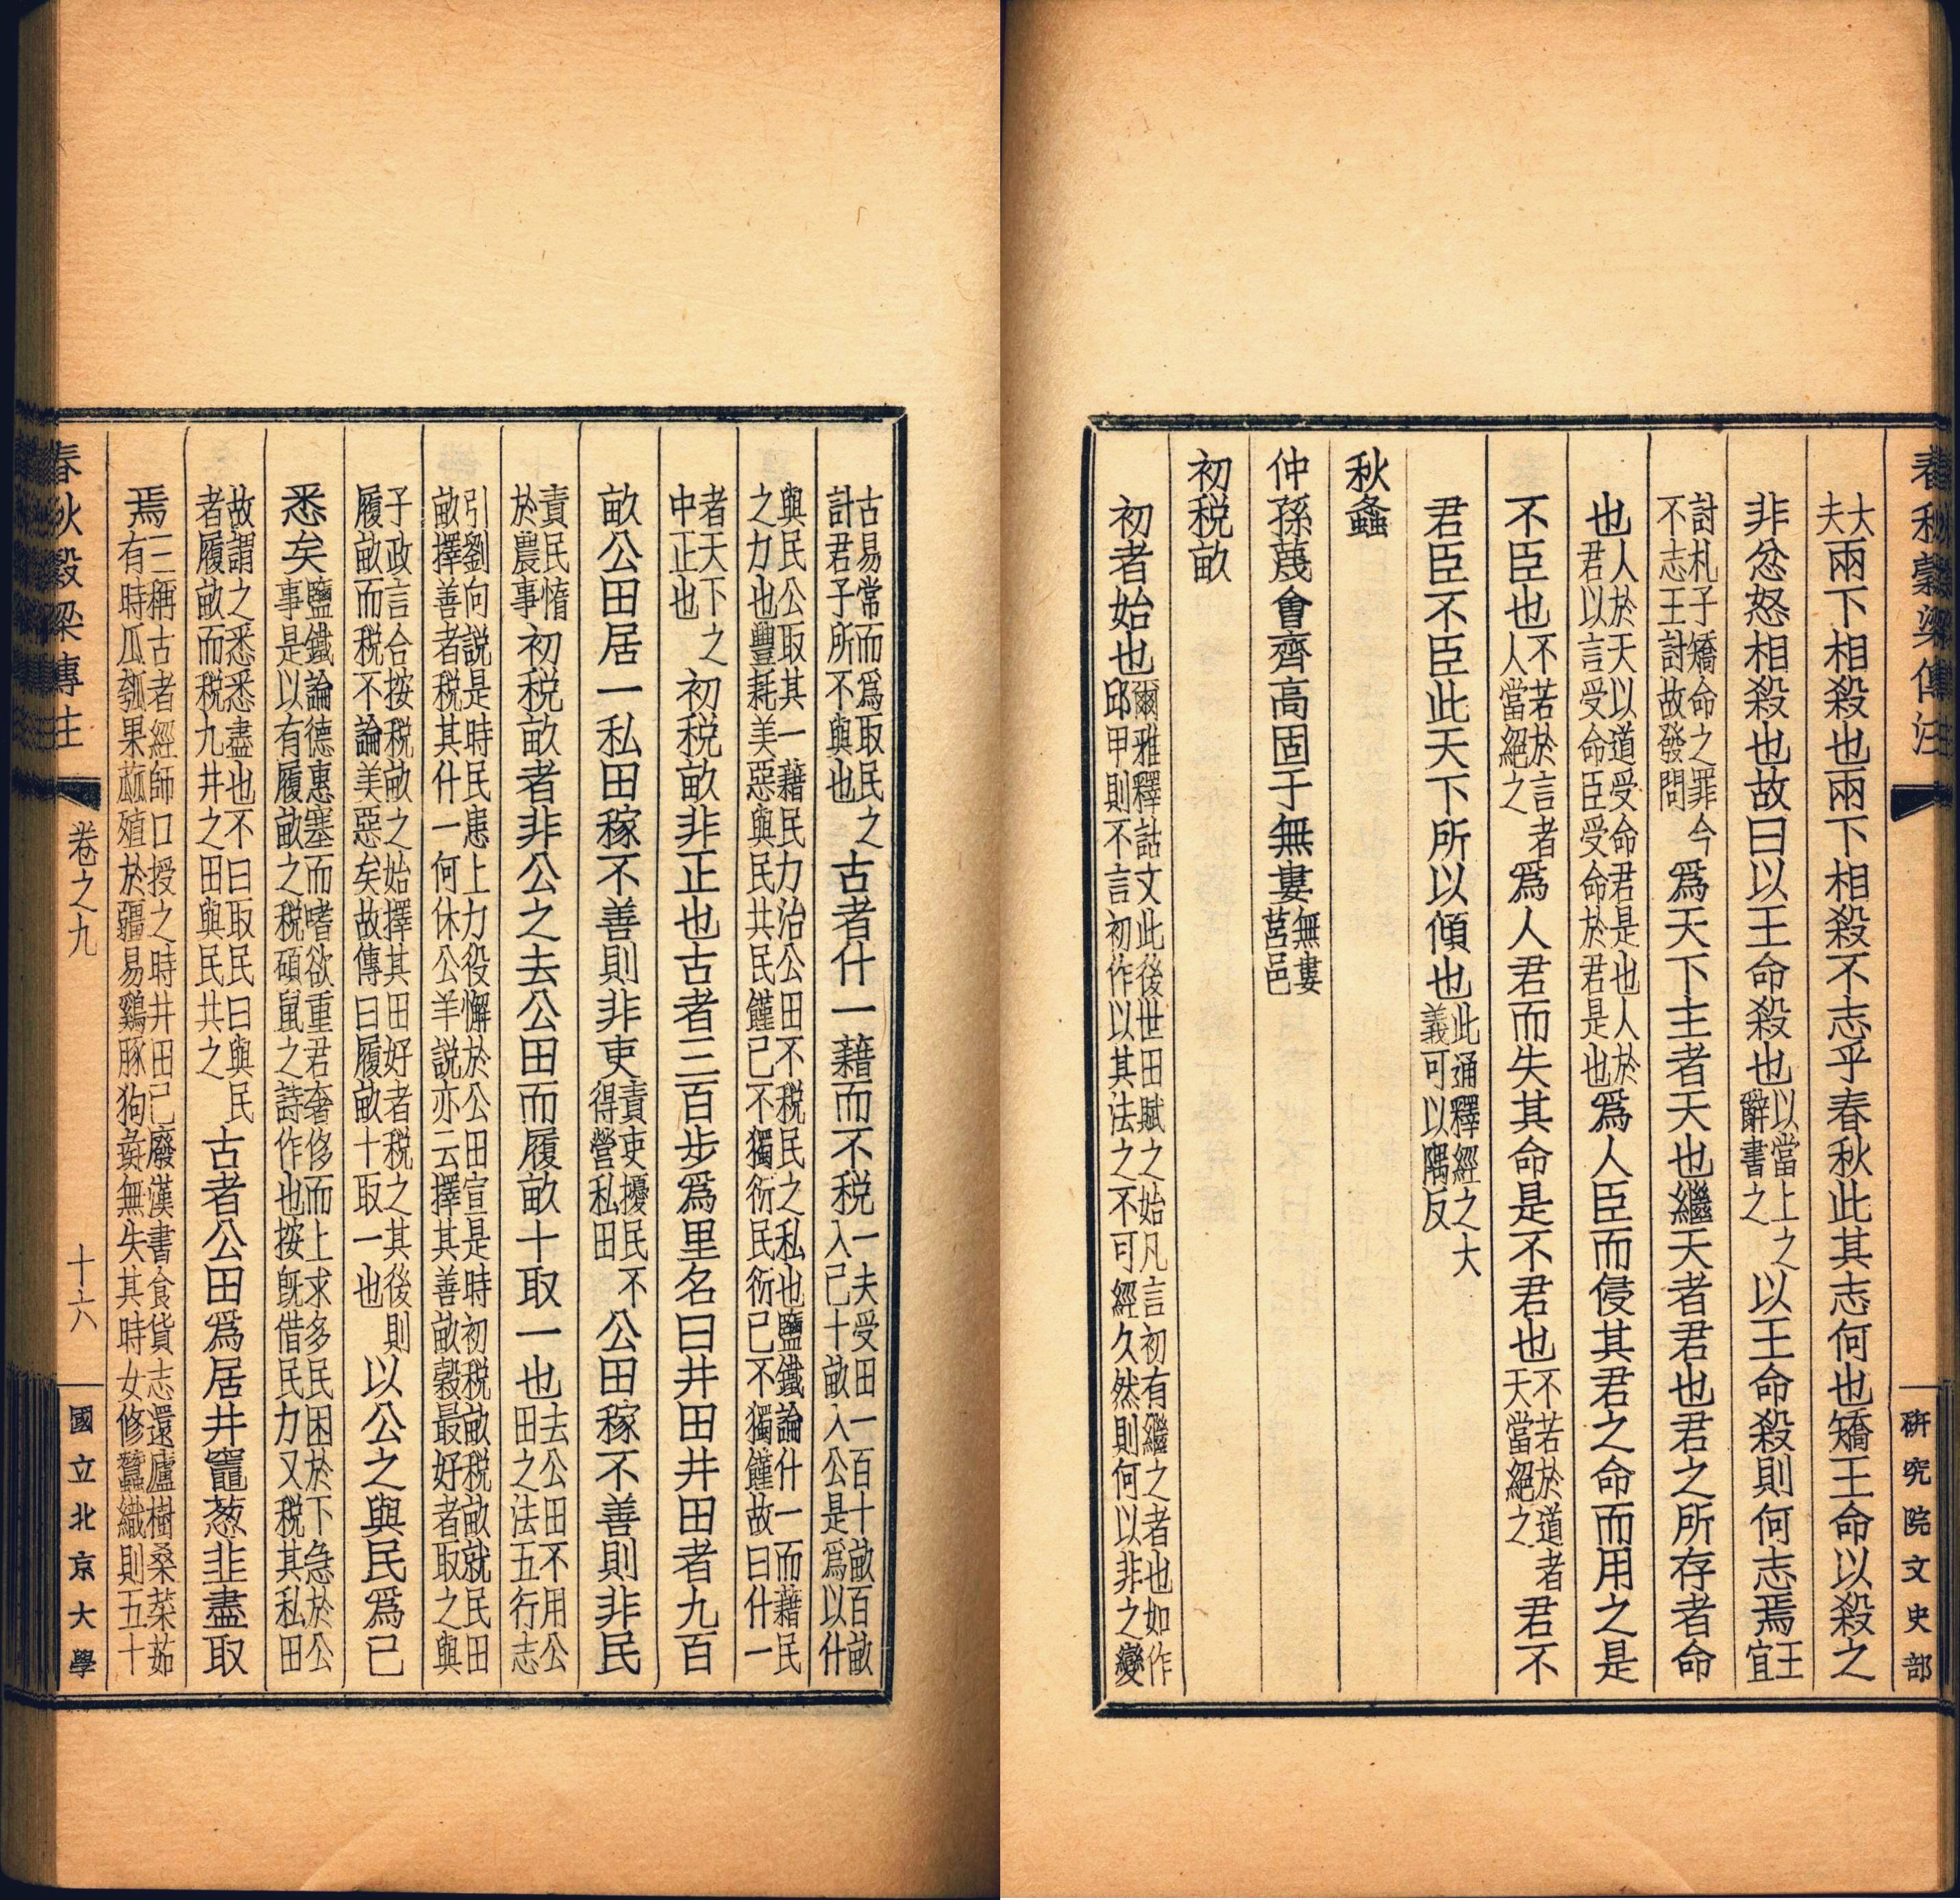 春秋穀梁傳注
研究院文史部
大夫兩下相殺也兩下相殺不志乎春秋此其志何也矯王命以殺之
非忿怒相殺也故曰以王命殺也以當上之辭書之以王命殺則何志焉王宜
討札子矯命之罪今不志王討故發問爲天下主者天也繼天者君也君之所存者命
也人於天以道受命君是也人於君以言受命臣受命於君是也爲人臣而侵其君之命而用之是
不臣也不若於言者人當絕之爲人君而失其命是不君也不若於道者天當絕之君不
君臣不臣此天下所以傾也此通釋經之大義可以隅反
秋螽
仲孫蔑會齊高固于無婁無婁莒邑
初税畝
初者始也爾雅釋詁文此後世田賦之始凡言初有繼之者也如作邱甲則不言初作以其法之不可經久然則何以非之變
古易常而爲取民之計君子所不與也古者什一藉而不税一夫受田一百十畝百畝入己十畝入公是爲以什
與民公取其一藉民力治公田不税民之私也鹽鐵論什一而藉民之力也豐耗美惡與民共民饉己不獨衍民衍己不獨饉故曰什一
者天下之中正也初税畝非正也古者三百步爲里名曰井田井田者九百
畝公田居一私田稼不善則非吏責吏擾民不得營私田公田稼不善則非民
責民惰於農事初税畝者非公之去公田而履畝十取一也去公田不用公田之法五行志
引劉向説是時民患上力役懈於公田宣是時初税畝税畝就民田畝擇善者税其什一何休公羊説亦云擇其善畝穀最好者取之與
子政言合按税畝之始擇其田好者税之其後則履畝而税不論美惡矣故傳曰履畝十取一也以公之與民爲已
悉矣鹽鐵論德惠塞而嗜欲重君奢侈而上求多民困於下急於公事是以有履畝之税碩鼠之詩作也按旣借民力又税其私田
故謂之悉悉盡也不曰取民曰與民者履畝而税九井之田與民共之古者公田爲居井竈葱韭盡取
焉三稱古者經師口授之時井田已廢漢書食貨志還廬樹桑菜茹有時瓜瓠果蓏殖於疆易鷄豚狗彘無失其時女修蠶織則五十
春秋穀梁傳注
卷之九
十六
國立北京大學